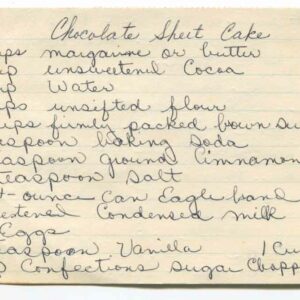 Chocolate Sheet Cake
ups margarine or butter
up unsweetened Cocoa
up Water
ups unsifted flour
ups firmly packed brown su
easpoon baking soda
easpoon ground Cinnamon
teaspoon salt
ounce can Eagle brand
etened Condensed milk
Eggs
easpoon Vanilla 1 Cu
Confections sugar Chopp